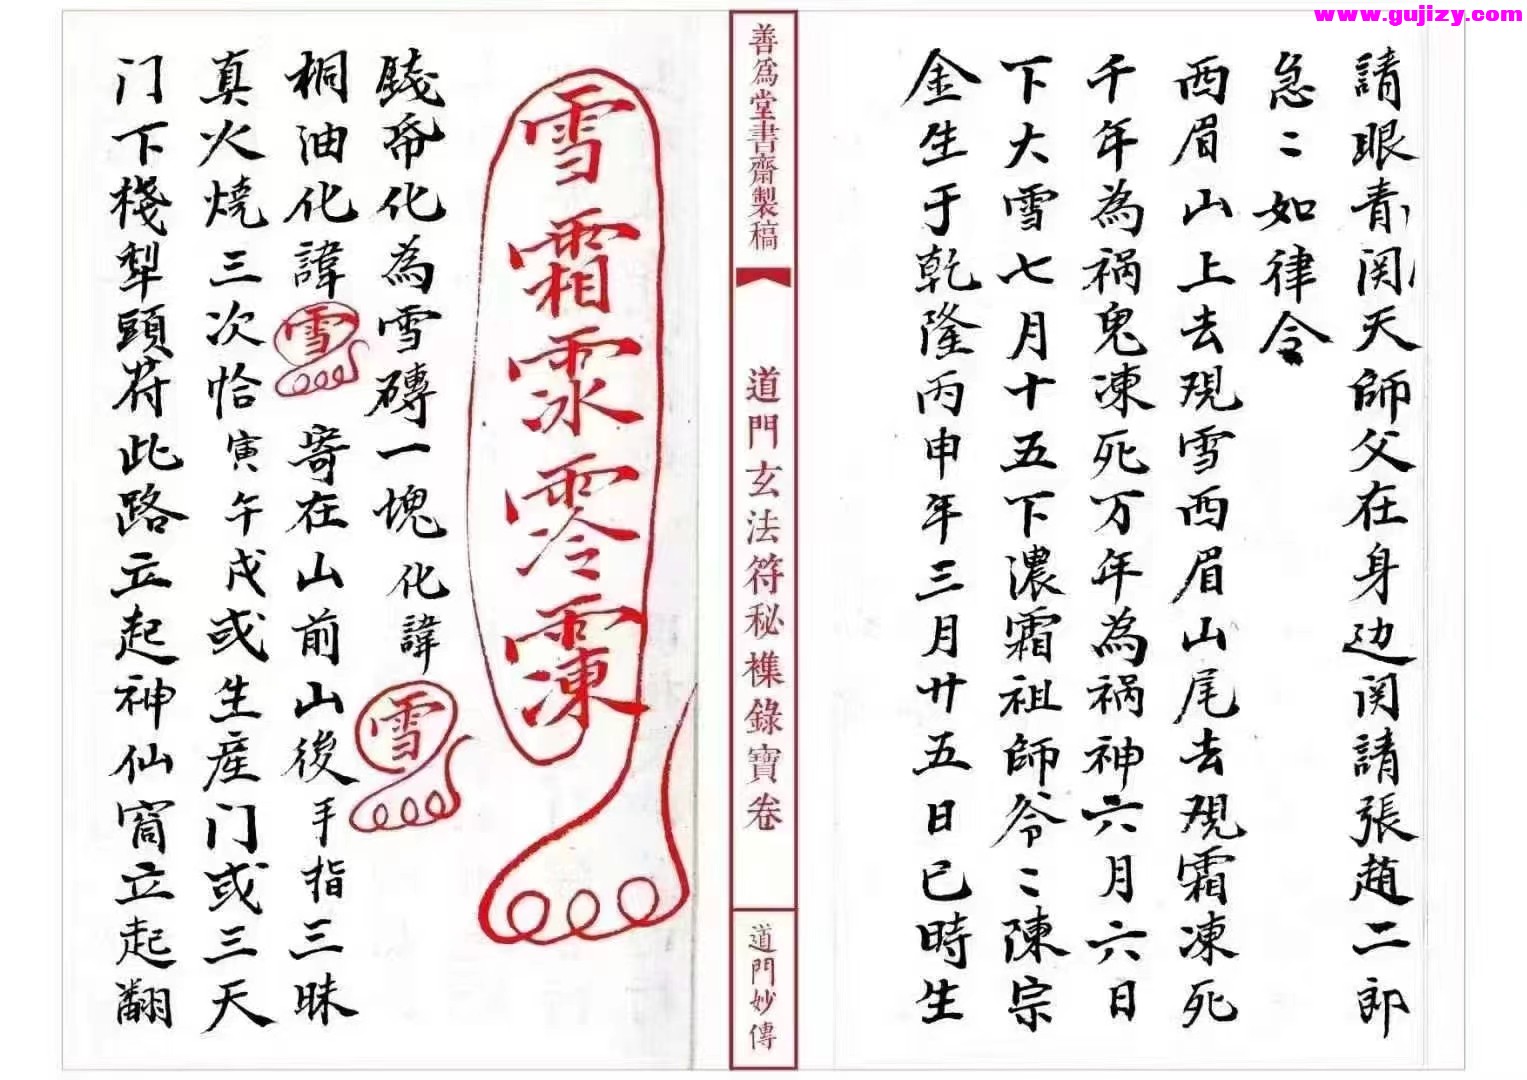 www.gujizy.com
請眼青関天師父在身边関請張趙二郎
急〻如律令
西眉山上去现雪西眉山尾去现霜凍死
千年為祸鬼凍死万年為祸神六月六日
下大雪七月十五下濃霜祖師爷〻陳宗
金生于乾隆丙申年三月廿五日已時生
善為堂書齋製稿
道門玄法符秘襍錄寶卷
道門妙傳
雪霜
凍
化為雪磚一塊化諱雪
桐油化諱雪寄在山前山後手指三昧
真火燒三次恰寅午戌或生産门或三天
门下栈犁頭符此路立起神仙窗立起翻